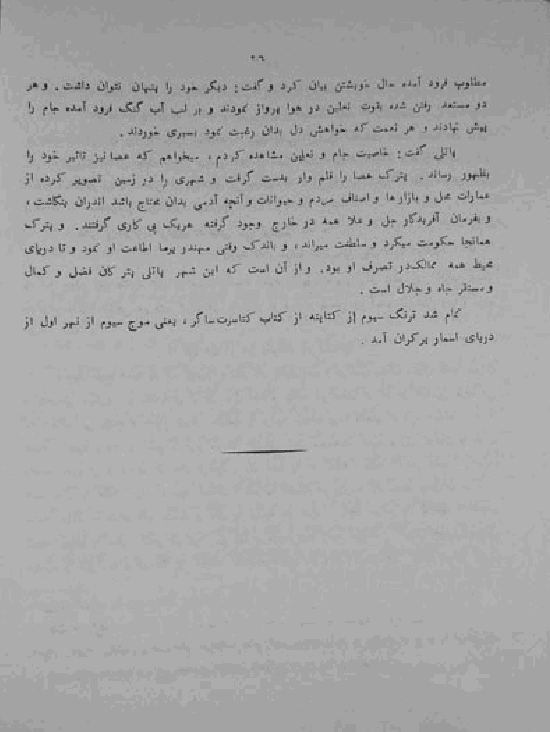 ۲۶
مطلوب فرود آمده حال خویشتن بیان کرد و گفت: دیگر خود را پنهان نتوان داشت. و هر
دو مستعد رفتن شده بقوت نعلین در هوا پرواز نمودند و بر لب آب گنگ فرود آمده جام را
پیش نهادند و هر نعمت که خواهش دل بدان رغبت نمود بسیری خوردند.
پاتلی گفت: خاصیت جام و نعلین مشاهده کردم، میخواهم که عصا نیز تاثیر خود را
بظهور رساند. پترک عصا را قلم وار بدست گرفت و شهری را در زمین تصویر کرده از
عمارات محل و بازارها و اصناف مردم و حیوانات و آنچه آدمی بدان محتاج باشد اندران بنگاشت،
و بفرمان آفریدگار جل و علا همه در خارج وجود گرفته هریک پی کاری گرفتند. و پترک
همانجا حکومت میکرد و سلطنت میراند، و باندک وقتی مهندو برما اطاعت او نمود و تا دریای
محیط همه ممالک در تصرف او بود. و از آن است که این شهر پاتلی پتر کان فضل و کمال
و مستقر جاه و جلال است.
تمام شد ترنگ سیوم از کتاپته از کتاب کتاسرت ساگر، یعنی موج سیوم از نهر اول از
دریای اسمار برکران آمد.